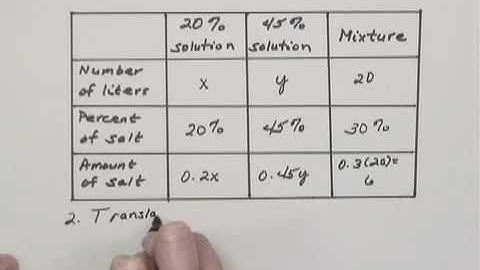 20% solution 45% solution Mixture
Number of liters x y 20
Percent of salt 20% 45% 30%
Amount of salt 0.2x 0.45y 0.3(20)= 6
2. Transla